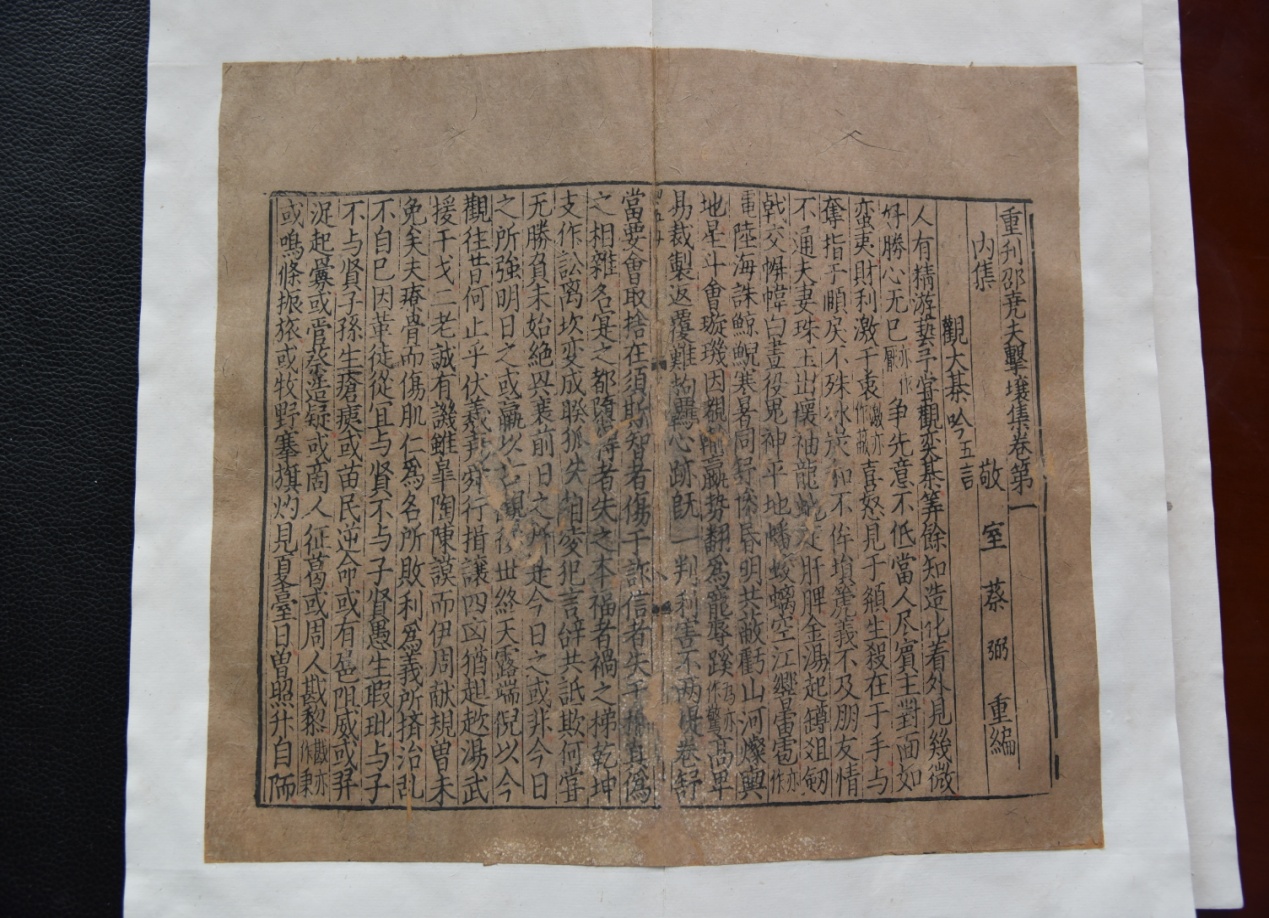 重刋邵尭夫擊壤集卷第一
内集　敬室蔡弼重編
觀大棊吟五言
人有精游藝予嘗觀奕棊筭餘知造化着外見幾微
好勝心无已亦作厭争先意不低當人尽賓主對面如
蛮夷財利激于衷激亦作蔵喜怒見于頯生殺在于手与
奪指于頤戾不殊冰炭和不侔塤篪義不及朋友情
不通夫妻珠玉出懷袖龍虵走肝脾金湯起罇爼劔
戟交幈幃白晝役鬼神平地蟠蛟螭空江響雷雹亦作
電陸海誅鯨鯢寒暑同舒惨昏明共蔽虧山河燦輿
地星斗會璇璣因覩輸贏勢翻爲寵辱蹊乃亦作驚高卑
易裁製返覆難拘羈心跡旣一判利害不两提卷舒
當要會取捨在須斯智者傷于詐信者失于椎真僞
之相雜名寔之都隳得者失之本福者禍之梯乾坤
支作訟离坎变成睽弧矢相凌犯言辞共詆欺何甞
无勝負未始絶興衰前日之所是今日之或非今日
之所強明日之或羸以古觀後世終天露端倪以今
觀往昔何止乎伏羲尭舜行揖讓四凶猶趑趄湯武
援干戈二老誠有譏雖皐陶陳謨而伊周献規曽未
免矣夫療骨而傷肌仁爲名所敗利爲義所擠治乱
不自已因革徒從宜与賢不与子賢愚生瑕玼与子
不与賢子孫生瘡痍或苗民逆命或有扈阻威或羿
浞起釁或管蔡造疑或商人征葛或周人戡黎戡亦作剩
或鳴條振旅或牧野塞旗灼見夏臺日曽照升自陑